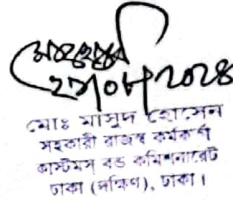 ২৭০৮২০২৪
মোঃ মাসুদ হোসেন
সহকারী রাজস্ব কর্মকর্তা
কাস্টমস বন্ড কমিশনারেট
ঢাকা (দক্ষিণ), ঢাকা।